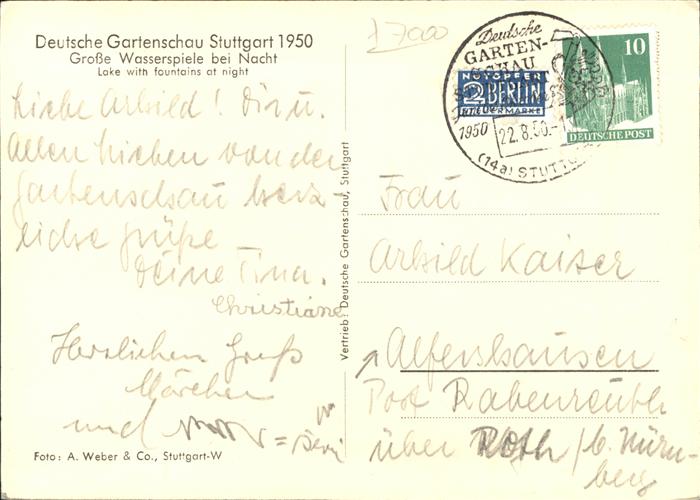 Deutsche Gartenschau Stuttgart 1950
Große Wasserspiele bei Nacht
Lake with fountains at night
Liebe Arhild! Dir u.
Allen Lieben von der
Gartenschau herz-
liche Grüße
Deine Tina.
Christiane
Herzlichen Gruß
Märchen
und
Foto: A. Weber & Co., Stuttgart-W
Vertrieb: Deutsche Gartenschau, Stuttgart
17000
Deutsche
GARTEN-
SCHAU
1950
22.8.50.-1
(14a) STUTTG
NOTOPFER
2 BERLIN
STEUERMARKE
10
DEUTSCHE POST
Frau
Arhild Kaiser
Alfershausen
Post Rabenreuth
über Roth / b. Nürn-
berg